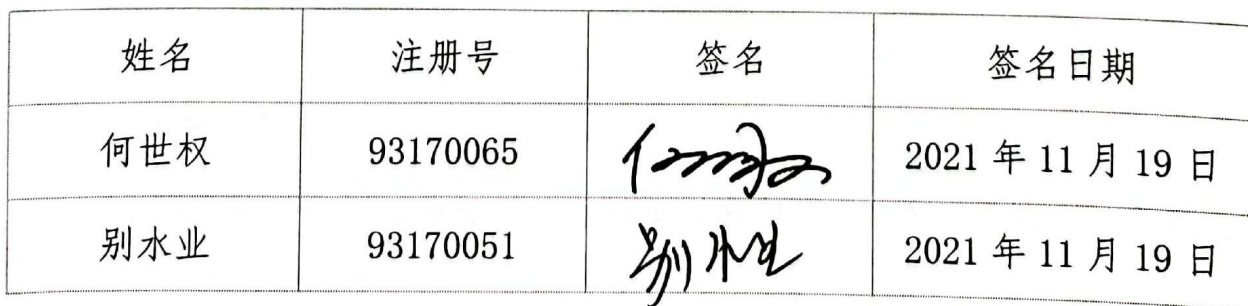 姓名 注册号 签名 签名日期
何世权 93170065 2021 年 11 月 19 日
别水业 93170051 2021 年 11 月 19 日